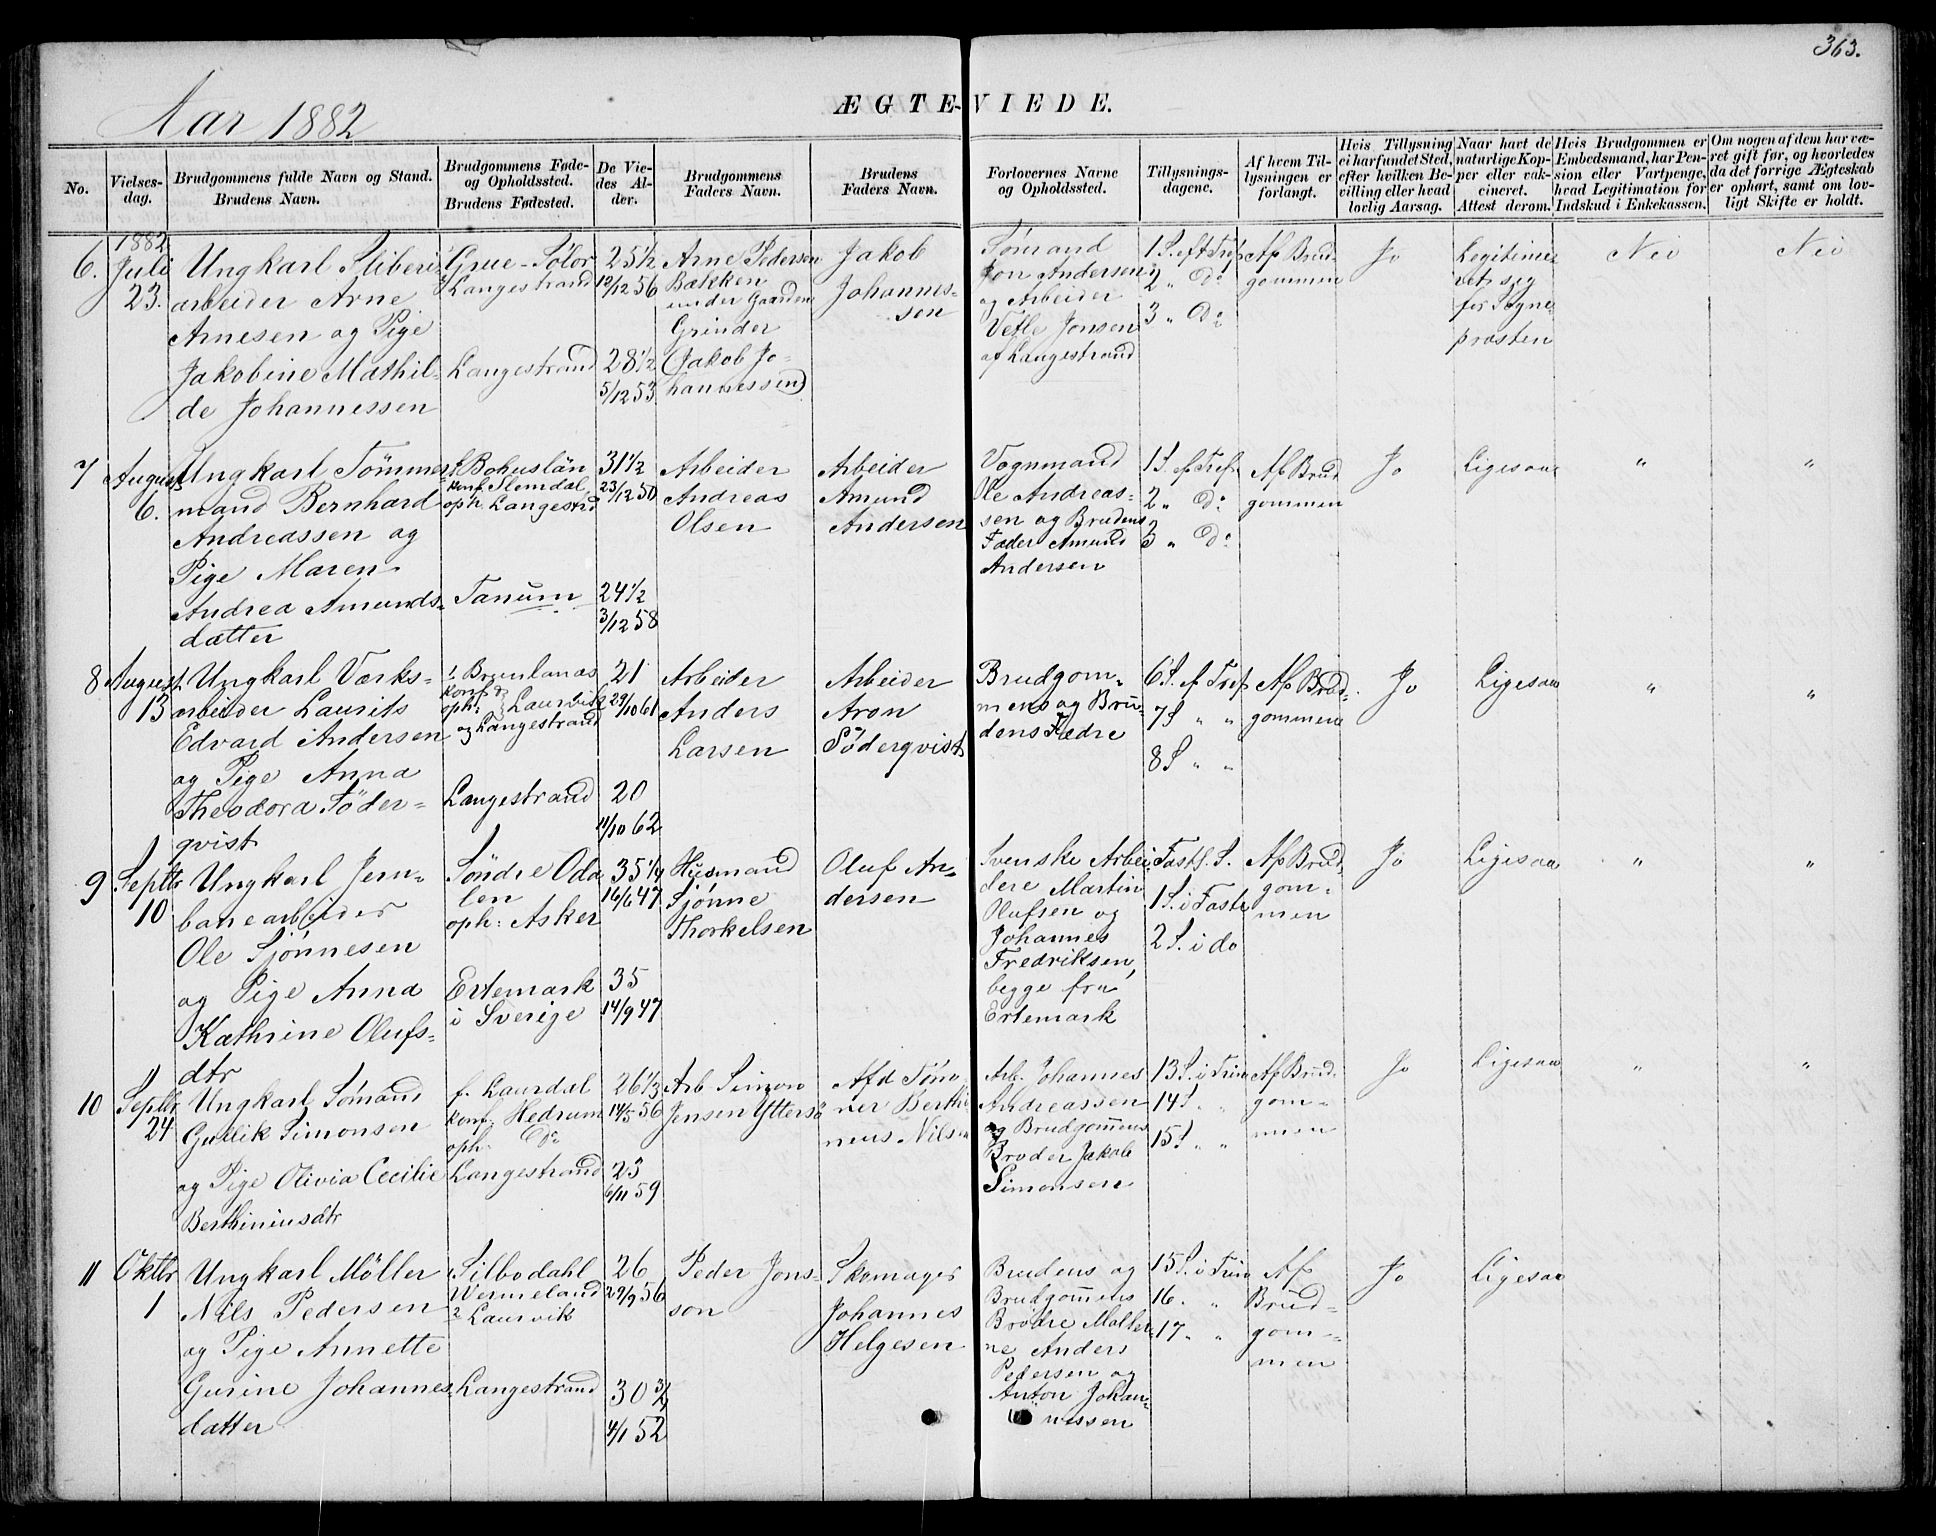 363.
Aar 1882
ÆGTE-VIEDE.
No.
Vielses-
dag.
Brudgommens fulde Navn og Stand.
Brudens Navn.
Brudgommens Føde-
og Opholdssted.
Brudens Fødested.
De Vie-
des Al-
der.
Brudgommens
Faders Navn.
Brudens
Faders Navn.
Forlovernes Navne
og Opholdssted.
Tillysnings-
dagene.
Af hvem Til-
lysningen er
forlangt.
Hvis Tillysning
ei har fundet Sted,
efter hvilken Be-
villing eller hvad
lovlig Aarsag.
Naar havt de
naturlige Kop-
per eller vak-
cineret.
Attest derom.
Hvis Brudgommen er
Embedsmand, har Pen-
sion eller Vartpenge,
hvad Legitimation for
Indskud i Enkekassen.
Om nogen af dem har væ-
ret gift før, og hvorledes
da det forrige Ægteskab
er ophørt, samt om lov-
ligt Skifte er holdt.
6.
1882
Juli
23.
Ungkarl Sliberi
arbeider Arne
Arnesen og Pige
Jakobine Mathil-
de Johannessen
Grue-Solør
Langestrand
Langestrand
25 1/2
12/12 56
28 1/2
5/12 53
Arne Pedersen
Bækken
under Gaarden
Grinder
(Jakob Jo-
hannessen)
Jakob
Johannes-
sen
Sømand
Jon Andersen
og Arbeider
Vetle Jonsen
af Langestrand
1 S. eft Tref
2 " Do
3 " Do
Af Brud-
gommen
Jo
Legitime-
ret sig
for Sogne-
præsten
Nei
Nei
7
August
6.
Ungkarl Tømmer-
mand Bernhard
Andreassen og
Pige Maren
Andrea Amunds-
datter
f. Bohuslän
konf. Slemdal
oph. Langestrd
Tanum
31 1/2
23/12 50
24 1/2
3/12 58
Arbeider
Andreas
Olsen
Arbeider
Amund
Andersen
Vognmand
Ole Andreas-
sen og Brudens
Fader Amund
Andersen
1 S. ef Tref.
2 " Do
3 " Do
Af Brud
gommen
Jo
Ligesaa
"
"
8
August
13
Ungkarl Værks-
arbeider Laurits
Edvard Andersen
og Pige Anna
Theodora Söder-
qvist
Brunlanæs
konf. og
oph: Laurvik
og Langestrand
Langestrand
21
29/10 61
20
11/10 62
Arbeider
Anders
Larsen
Arbeider
Aron
Söderqvist
Brudgom-
mens og Bru-
dens Fædre
6 S. ef Tref
7 S " "
8 S " "
Af Brud-
gommen
Jo
Ligesaa
"
"
9
Septbr
10
Ungkarl Jern-
banearbeider
Ole Sjønnesen
og Pige Anna
Kathrine Olufs-
dtr
Søndre Oda
len
oph: Asker
Ertemark
i Sverige
35 1/4
16/6 47
35
14/9 47
Husmand
Sjønne
Thorkelsen
Oluf An-
dersen
Svenske Arbei-
dere Martin
Olufsen og
Johannes
Fredriksen,
begge fra
Ertemark
Fastl. S.
1 S. i Faste
2 S. i do
Af Brud
gom-
men
Jo
Ligesaa
"
"
10
Septbr
24
Ungkarl Sømand
Gullik Simonsen
og Pige Olivia Cecilie
Berthiniusdtr
f. Laurdal
konf. Hedrum
oph. Do
Langestrand
26 1/3
14/5 56
23
6/11 59
Arb Simon
Jensen Yttersø
Afd Tøm
ner Berthi
neus Nilsen
Arb. Johannes
Andreassen
og Brudgommens
Broder Jakob
Simonsen
13 S. i Trin
14 S. "
15 S " "
Af Brud-
gom-
men
Jo
Ligesaa
"
"
11
Oktbr
1
Ungkarl Møller
Nils Pedersen
og Pige Annette
Gurine Johannes-
datter
Silbodahl
Wermeland
Laurvik
Langestrand
26
29/9 56
30 3/4
4/1 52
Peder Jons-
son
Skomager
Johannes
Helgesen
Brudens og
Brudgommens
Brødre Møller-
ne Anders
Pedersen og
Anton Johan-
nessen
15 S. i Trin
16. "
17 " "
Af
Brud-
gom-
men
Jo
Ligesaa